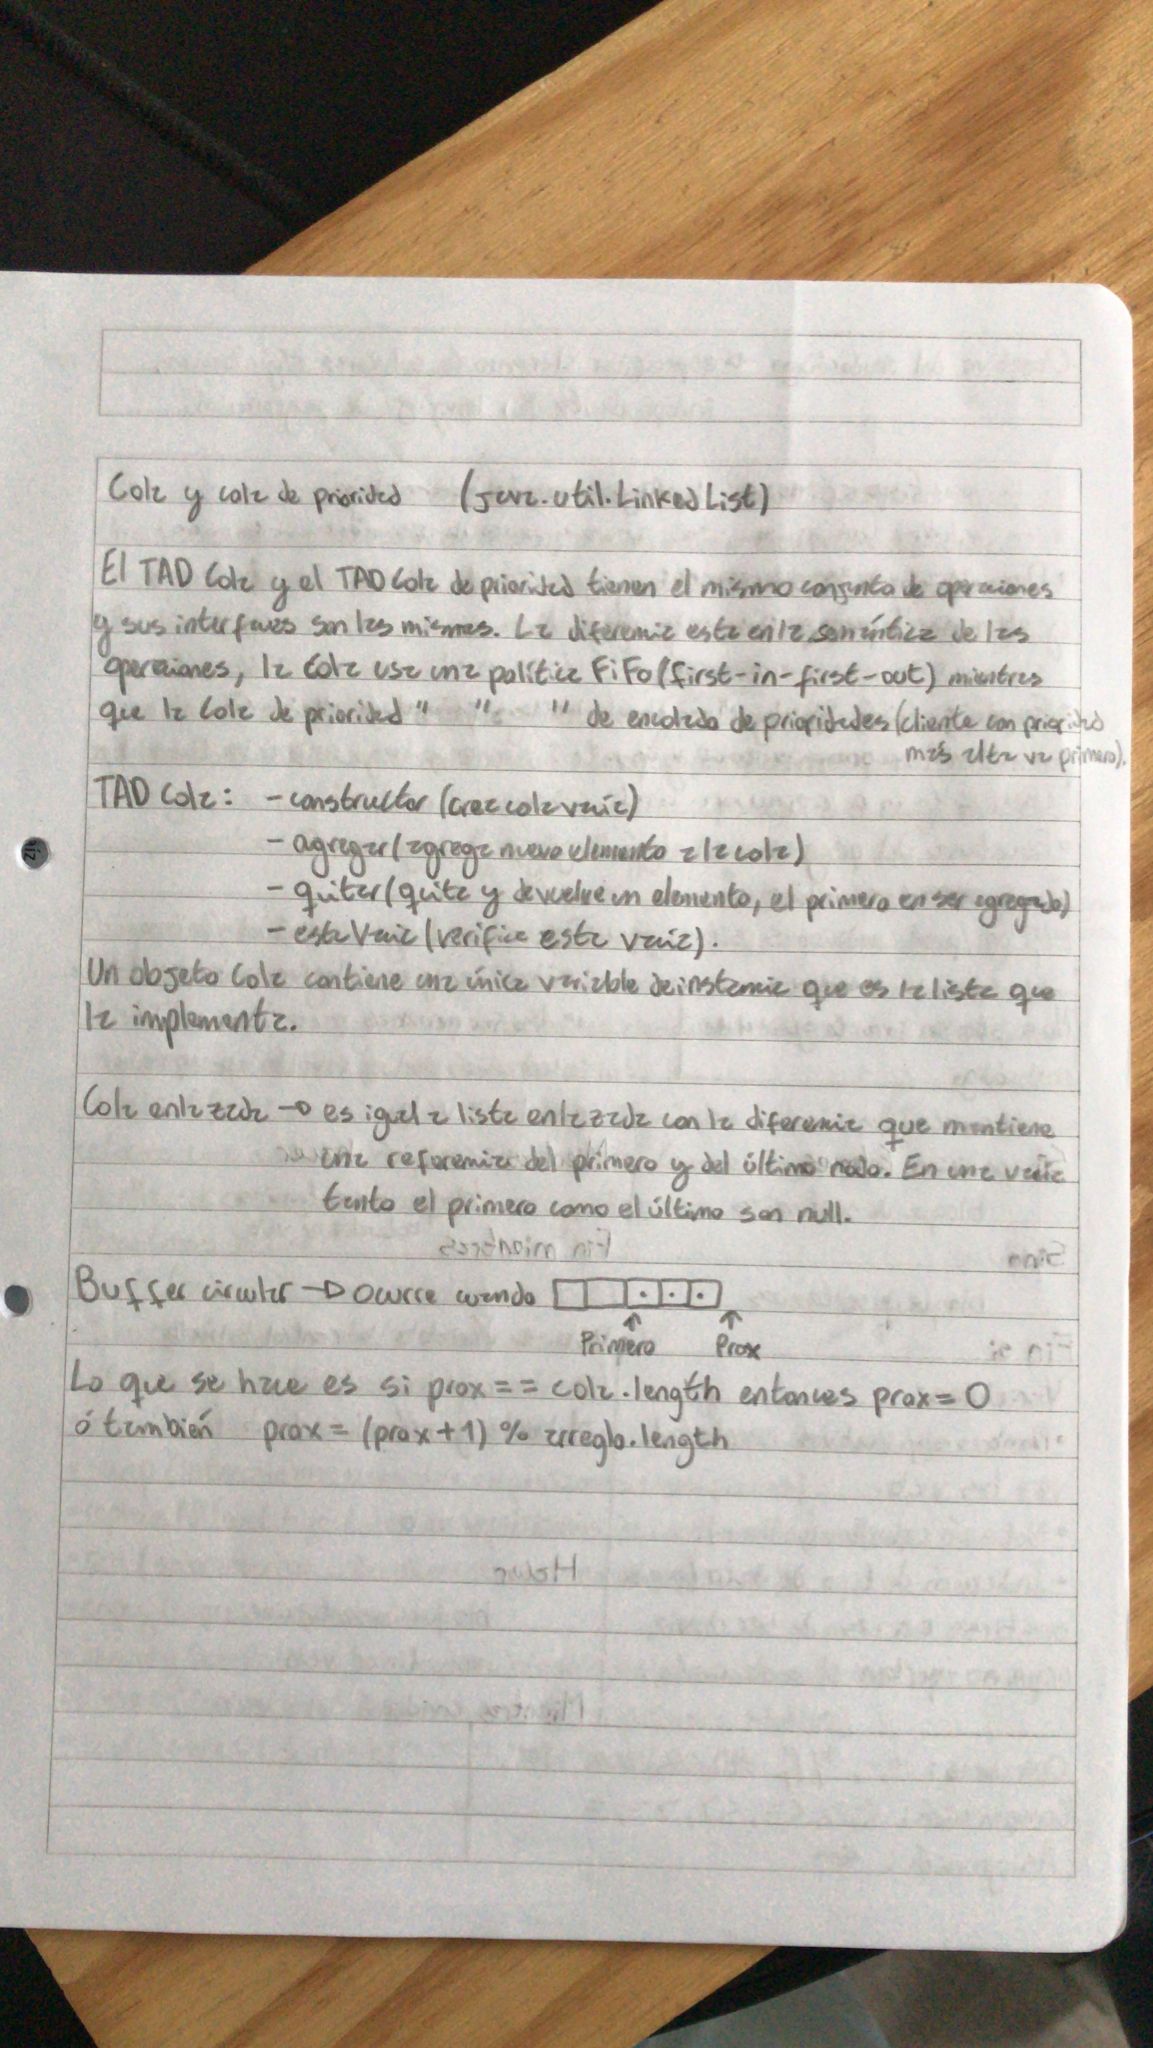 Cola y cola de prioridad (java.util.LinkedList)
El TAD Cola y el TAD Cola de prioridad tienen el mismo conjunto de operaciones
y sus interfaces son las mismas. La diferencia esta en la semántica de las
operaciones, la Cola usa una política FiFo (first-in-first-out) mientras
que la Cola de prioridad " " " de encolado de prioridades (cliente con prioridad
más alta va primero).
TAD Cola: - constructor (crea cola vacía)
- agregar (agrega nuevo elemento a la cola)
- quitar (quita y devuelve un elemento, el primero en ser agregado)
- estaVacía (verifica esta vacía).
Un objeto Cola contiene una única variable de instancia que es la lista que
la implementa.
Cola enlazada → es igual a lista enlazada con la diferencia que mantiene
una referencia del primero y del último nodo. En una vacía
tanto el primero como el último son null.
Buffer circular → Ocurre cuando
Primero Prox
Lo que se hace es si prox == cola.length entonces prox = 0
ó también prox = (prox + 1) % arreglo.length